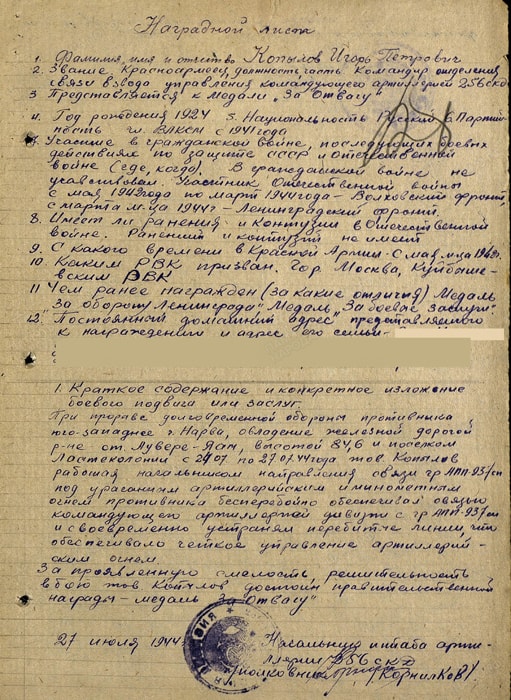 Наградной лист
1. Фамилия, имя и отчество Копылов Игорь Петрович
2. Звание Красноармеец, должность, часть Командир отделения
связи взвода управления командующего артиллерией 256скд
3 Представляется к Медали „За Отвагу"
4. Год рождения 1924 5. Национальность Русский 6. Партий-
ность чл. ВЛКСМ с 1941 года
7. Участие в гражданской войне, последующих боевых
действиях по защите СССР и отечественной
войне (где, когда). В гражданской войне не
участвовал. Участник Отечественной войны
с мая 1942 года по март 1944 года - Волховский фронт,
с марта м-ца 1944 г - Ленинградский фронт.
8. Имеет ли ранения и контузии в Отечественной
войне. Ранений и контузий не имеет
9. С какого времени в Красной Армии - С мая м-ца 1942г.
10. Каким РВК призван. Гор. Москва, Куйбыше-
вским РВК
11 Чем ранее награжден (за какие отличия) Медаль
„За оборону Ленинграда" Медаль „За боевые заслуги"
12. Постоянный домашний адрес представляемого
к награждению и адрес его семьи-
1. Краткое содержание и конкретное изложение
боевого подвига или заслуг
При прорыве долговременной обороны противника
юго-западнее г. Нарва, овладение железной дорогой
р-не ст. Аувере-Яам, высотой 84,6 и поселком
Ластеколони с 24.07 по 27.07.44 года тов. Копылов
работая начальником направления связи гр АПП-937сп
под ураганным артиллерийским и минометным
огнем противника бесперебойно обеспечивал связью
командующего артиллерией дивизии с гр АПП-937сп
и своевременно устранял перебитые линии, что
обеспечивало четкое управление артиллерий-
ским огнем
За проявленную смелость, решительность
в бою тов Копылов достоин правительственной
награды - медаль „За Отвагу"
27 июля 1944 Начальник штаба арти-
ллерии 256 скд
полковник (Корнилков)